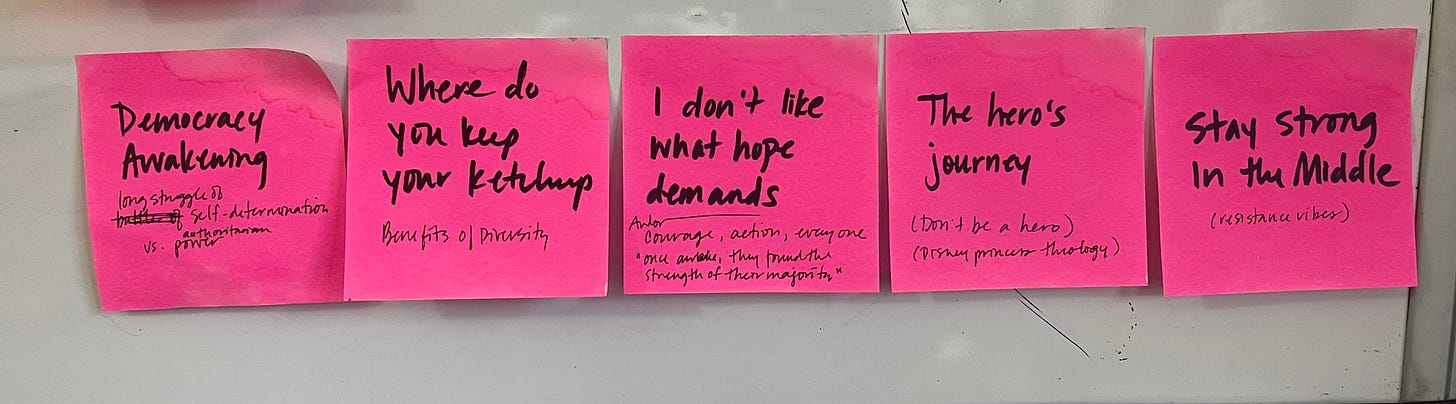 Democracy
Awakening
long struggle of
self-determination
vs. authoritarian
power
Where do
you keep
your ketchup
Benefits of Diversity
I don't like
what hope
demands
Andor
courage, action, everyone
"once awake, they found the
strength of their majority"
The hero's
journey
(Don't be a hero)
(Disney princess theology)
Stay Strong
In the Middle
(resistance vibes)